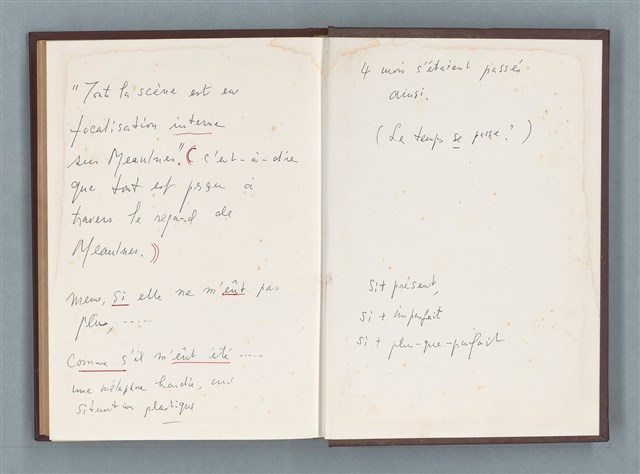 "Tout la scène est en
focalisation interne
sur Meaulnes." (c'est-à-dire
que tout est perçu à
travers le regard de
Meaulnes.)
Meme, si elle ne m'eût pas
plu, .....
Comme s'il m'eût été .....
une métaphore hardie, une
situation plastique
4 mois s'étaient passés
ainsi.
(Le temps se passe ? )
Si + présent,
si + imparfait
si + plu-que-parfait